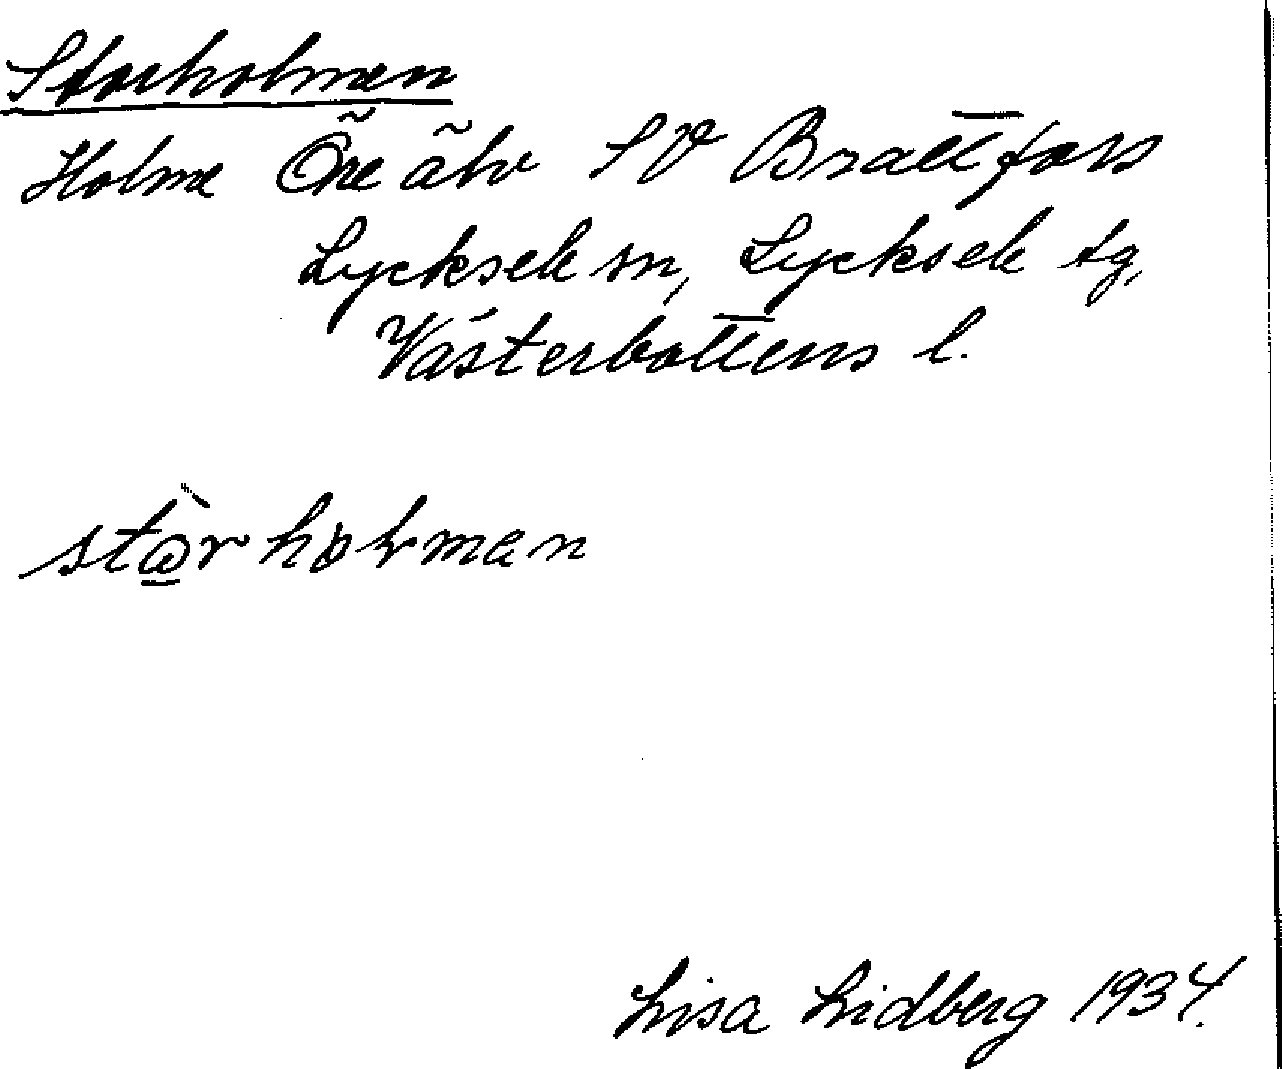 Storholmen
Holme Öre älv SV Brattfors
Lycksele sn, Lycksele tg,
Västerbottens l.
stơrholman
Lisa Lidberg 1934.